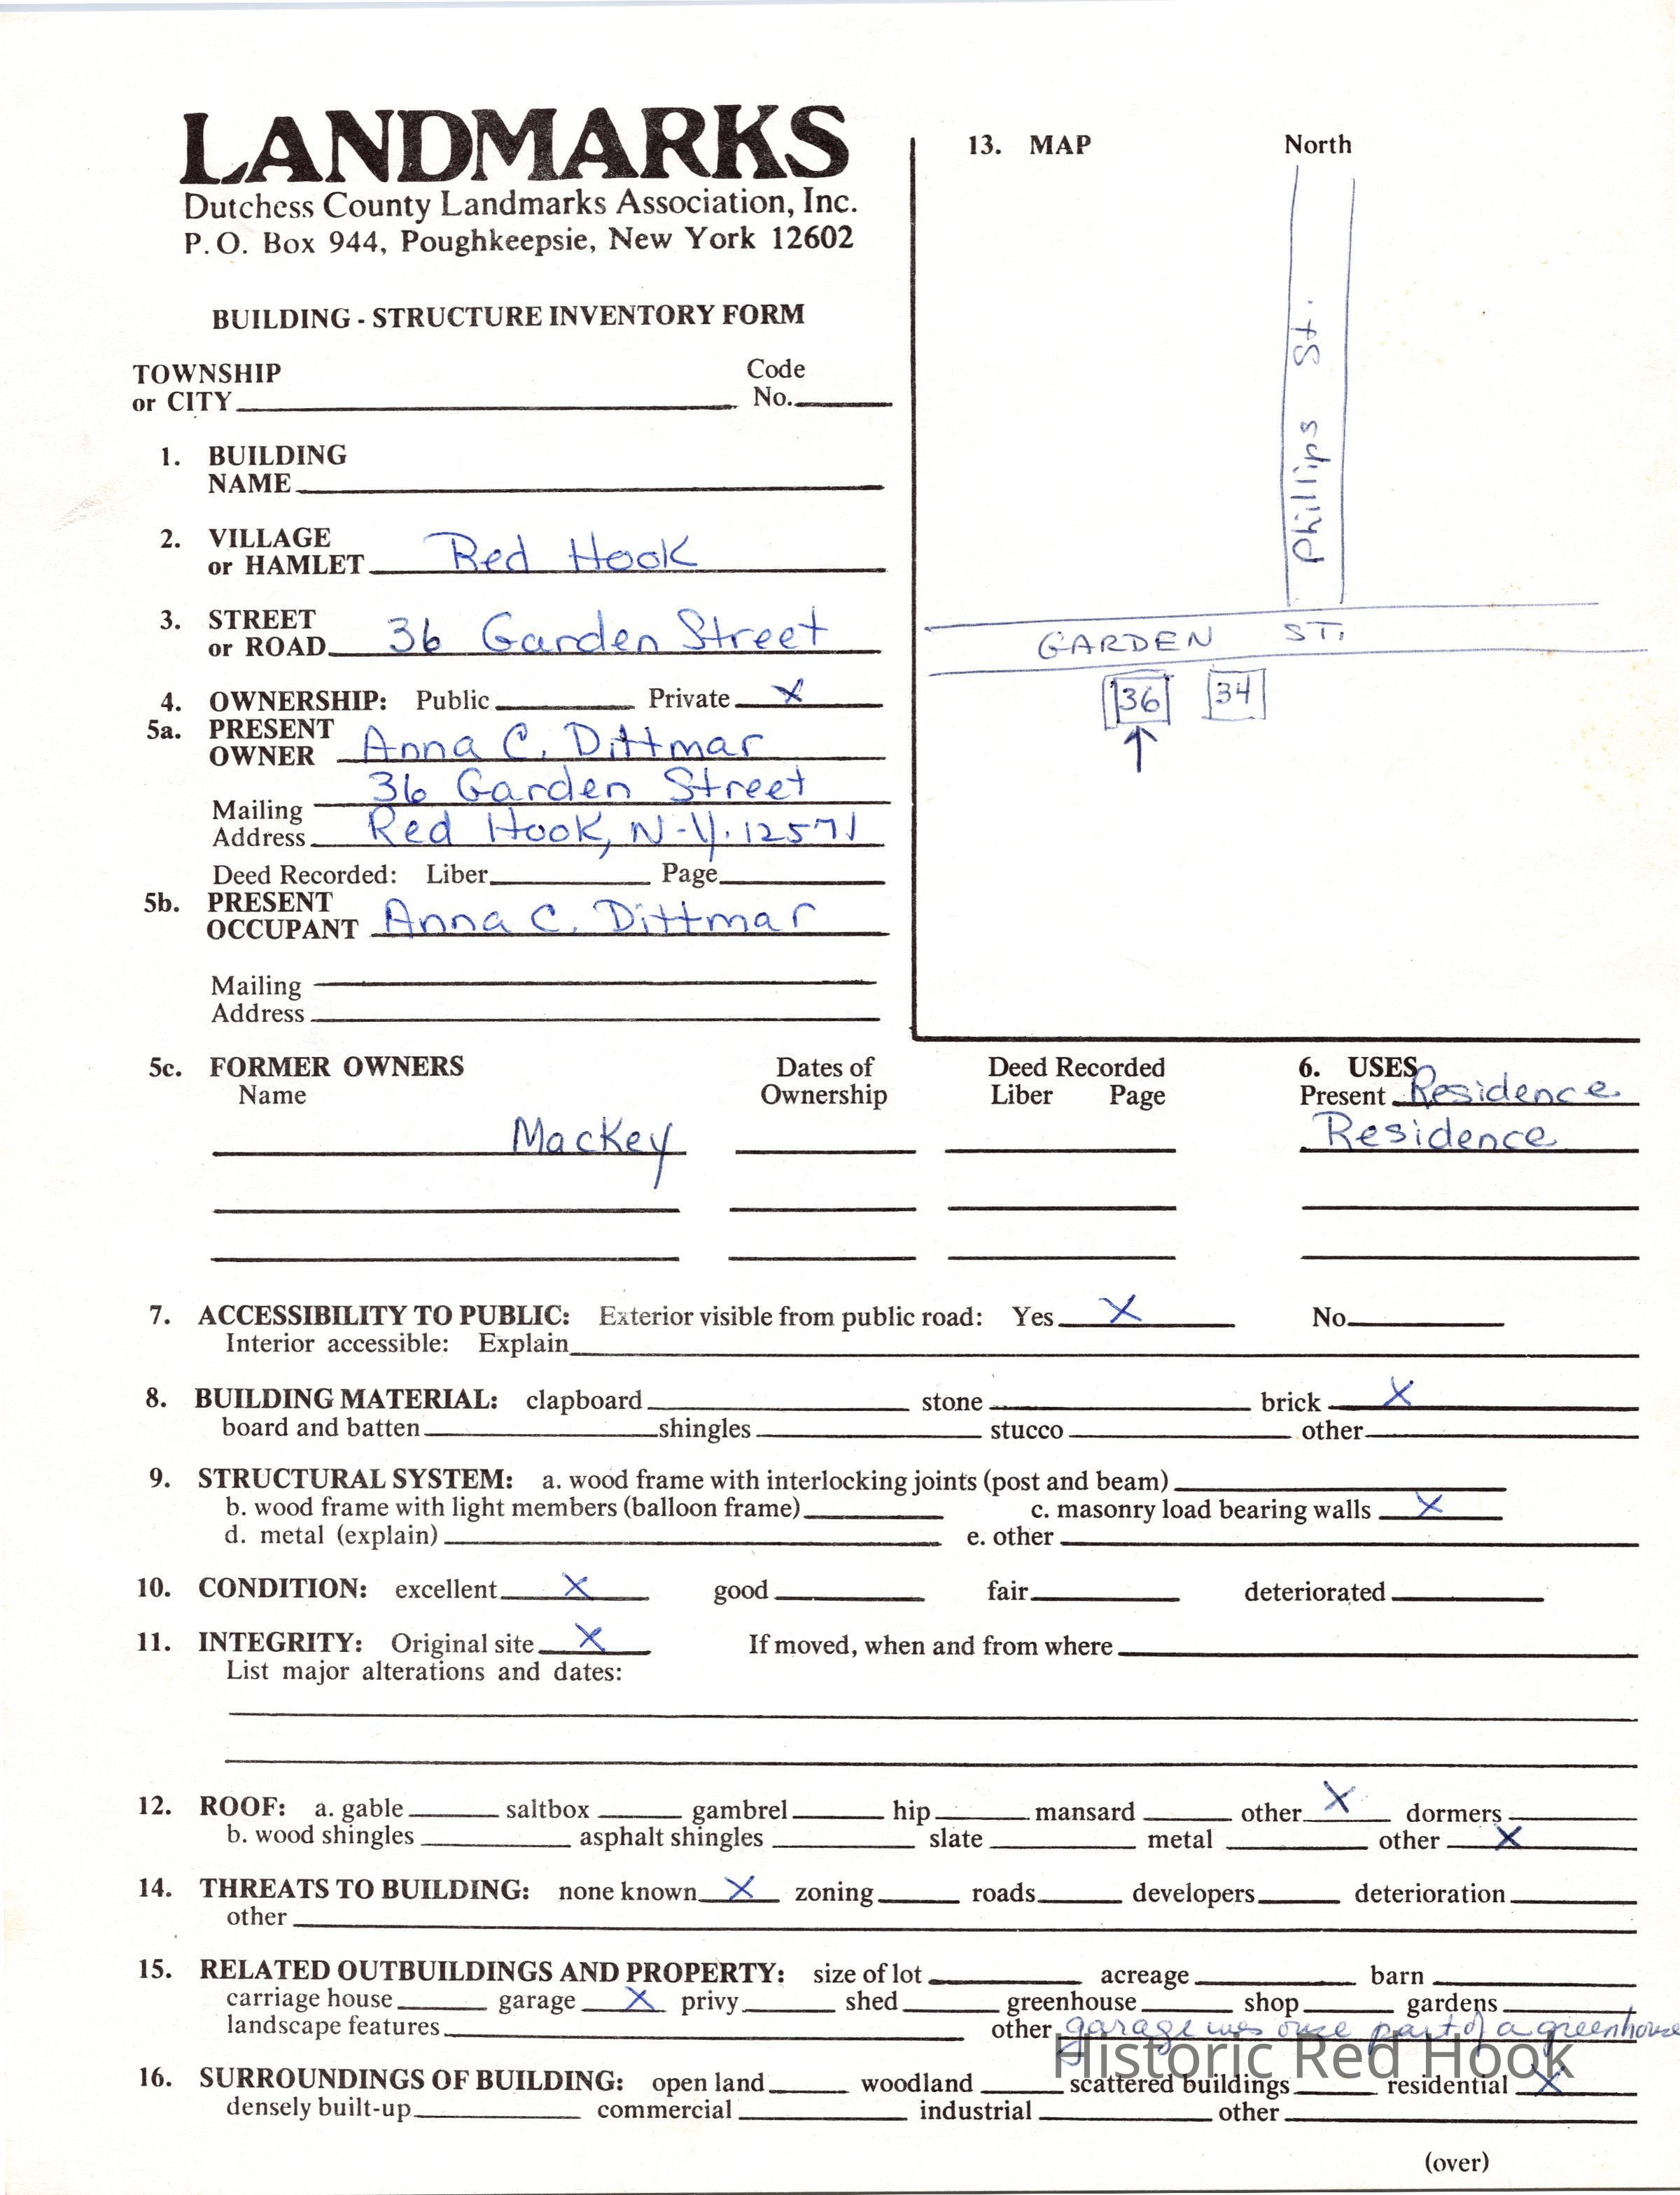 LANDMARKS
Dutchess County Landmarks Association, Inc.
P.O. Box 944, Poughkeepsie, New York 12602
BUILDING - STRUCTURE INVENTORY FORM
TOWNSHIP
or CITY
Code
No.
1. BUILDING
NAME
2. VILLAGE
or HAMLET Red Hook
3. STREET
or ROAD 36 Garden Street
4. OWNERSHIP: Public Private X
5a. PRESENT
OWNER Anna C. Dittmar
36 Garden Street
Mailing
Address Red Hook, N.Y. 12571
Deed Recorded: Liber Page
5b. PRESENT
OCCUPANT Anna C. Dittmar
Mailing
Address
13. MAP North
Phillips St.
GARDEN ST.
36 34
5c. FORMER OWNERS
Name
Dates of
Ownership
Deed Recorded
Liber Page
6. USES
Present Residence
Mackey Residence
7. ACCESSIBILITY TO PUBLIC: Exterior visible from public road: Yes X No
Interior accessible: Explain
8. BUILDING MATERIAL: clapboard stone brick X
board and batten shingles stucco other
9. STRUCTURAL SYSTEM: a. wood frame with interlocking joints (post and beam)
b. wood frame with light members (balloon frame) c. masonry load bearing walls X
d. metal (explain) e. other
10. CONDITION: excellent X good fair deteriorated
11. INTEGRITY: Original site X If moved, when and from where
List major alterations and dates:
12. ROOF: a. gable saltbox gambrel hip mansard other X dormers
b. wood shingles asphalt shingles slate metal other X
14. THREATS TO BUILDING: none known X zoning roads developers deterioration
other
15. RELATED OUTBUILDINGS AND PROPERTY: size of lot acreage barn
carriage house garage X privy shed greenhouse shop gardens
landscape features other garage was once part of a greenhouse
Historic Red Hook
16. SURROUNDINGS OF BUILDING: open land woodland scattered buildings residential X
densely built-up commercial industrial other
(over)